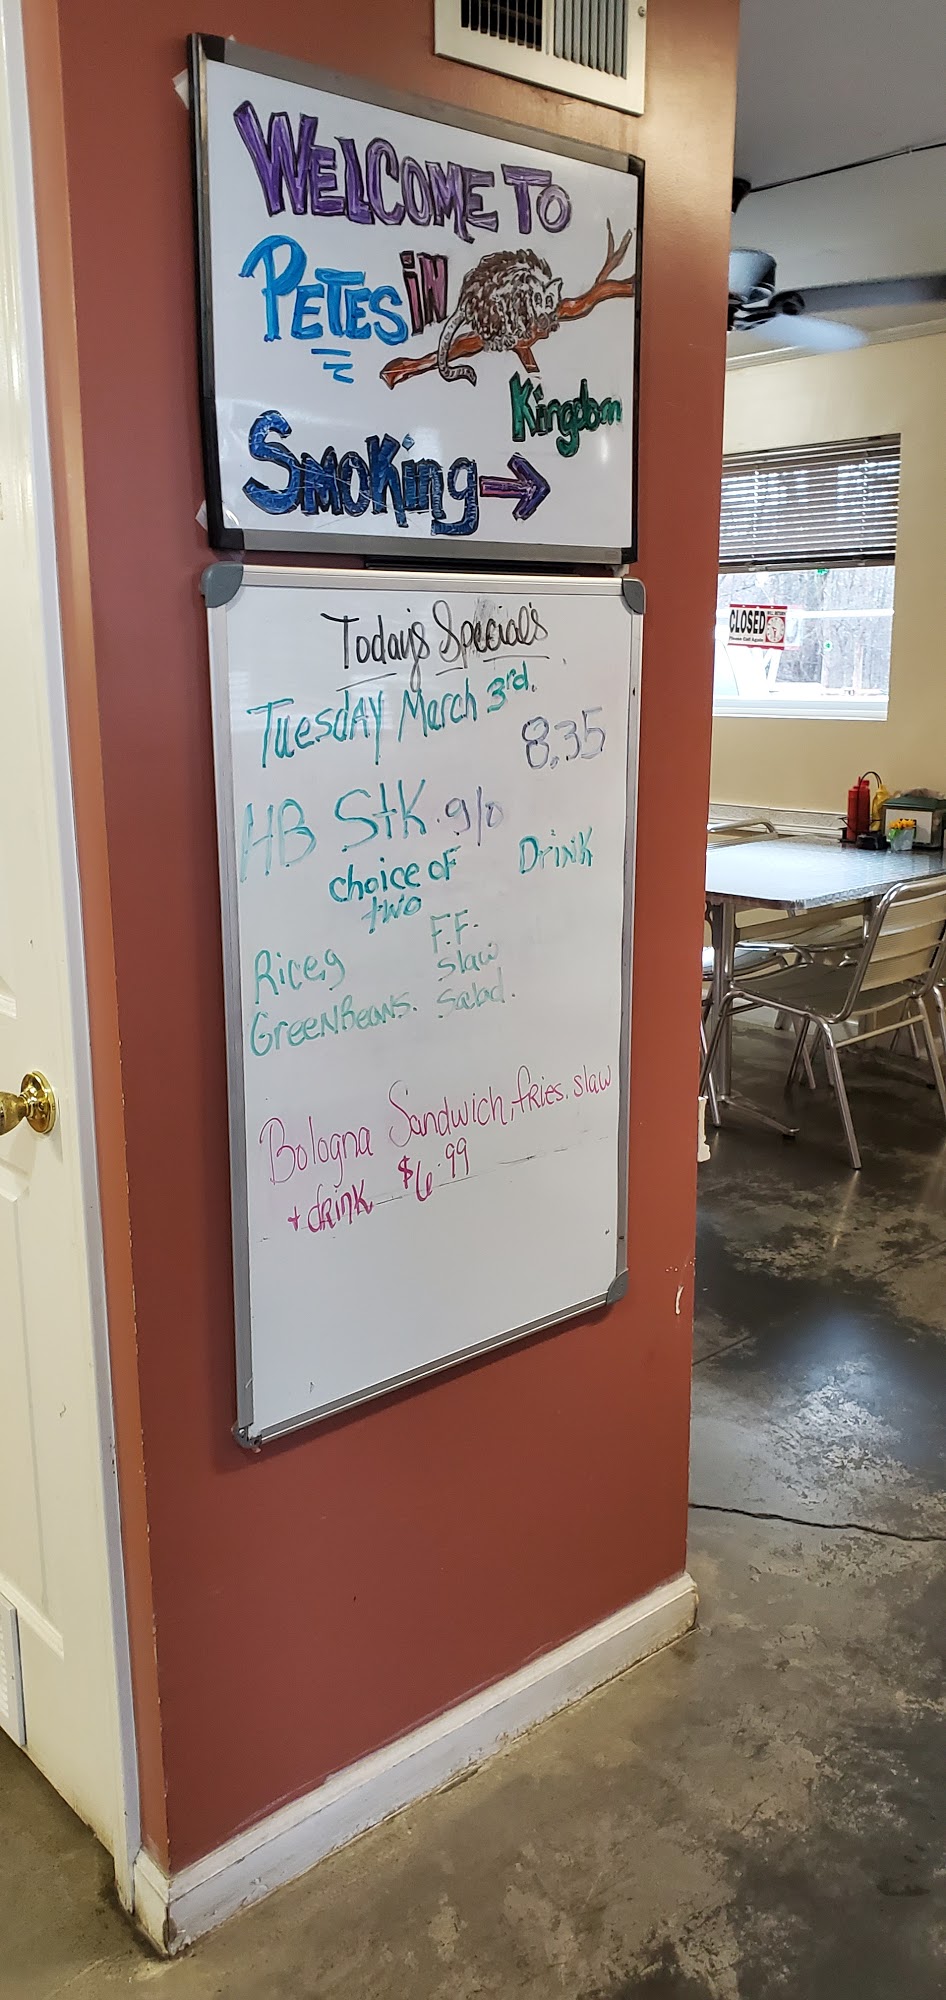 WELCOME TO
PETES iN
Kingdom
SMOKing →
Today's Special's
Tuesday March 3rd.
8.35
HB StK. g/o
choice of Drink
two
Rice,g F.F.
slaw
GreenBeans. Salad.
Bologna Sandwich, fries. slaw
+ drink $6.99
CLOSED
Please Call Again